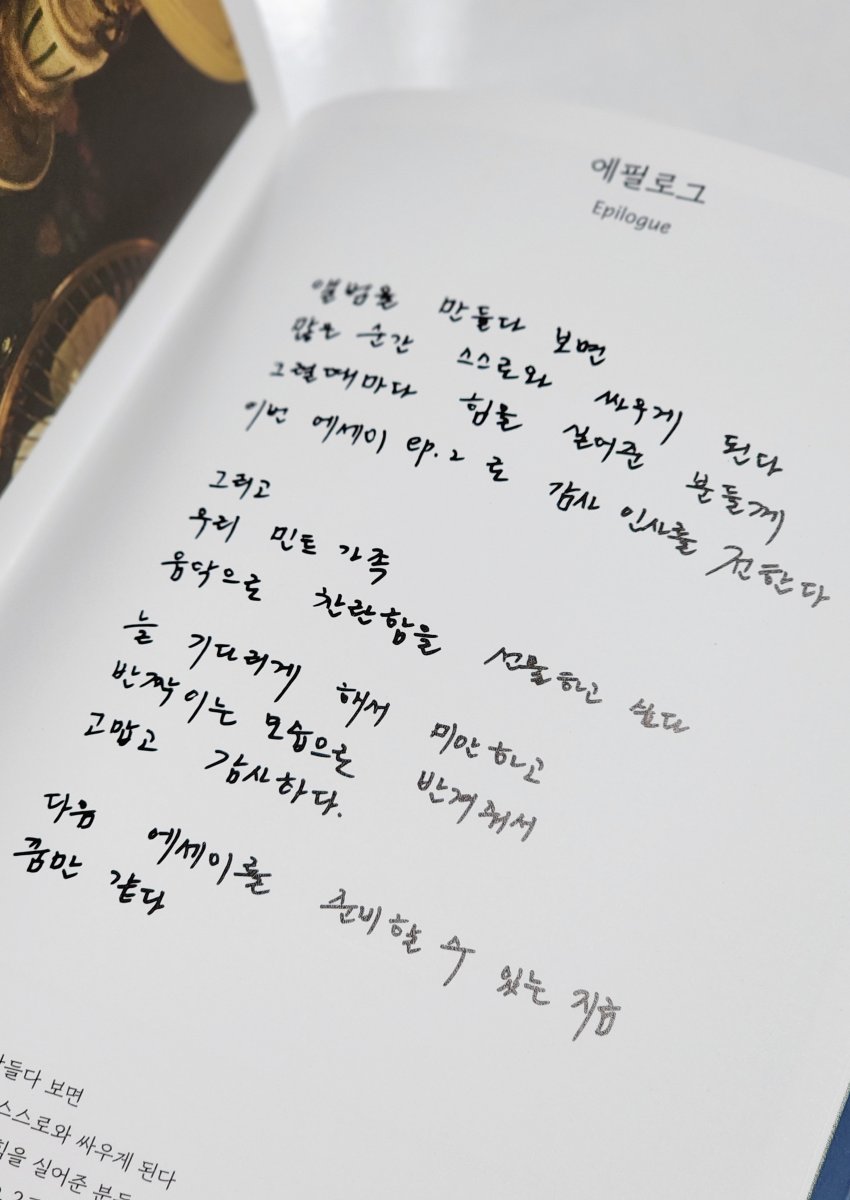 에필로그
Epilogue
앨범을 만들다 보면
많은 순간 스스로와 싸우게 된다
그럴때마다 힘을 실어준 분들께
이번 에세이 ep.2 로 감사 인사를 전한다
그리고
우리 민트 가족
음악으로 찬란함을 선물하고 싶다
늘 기다리게 해서 미안하고
반짝이는 모습으로 반겨줘서
고맙고 감사하다.
다음 에세이를 준비할 수 있는 지금
꿈만 같다
들다 보면
스스로와 싸우게 된다
힘을 실어준 분들